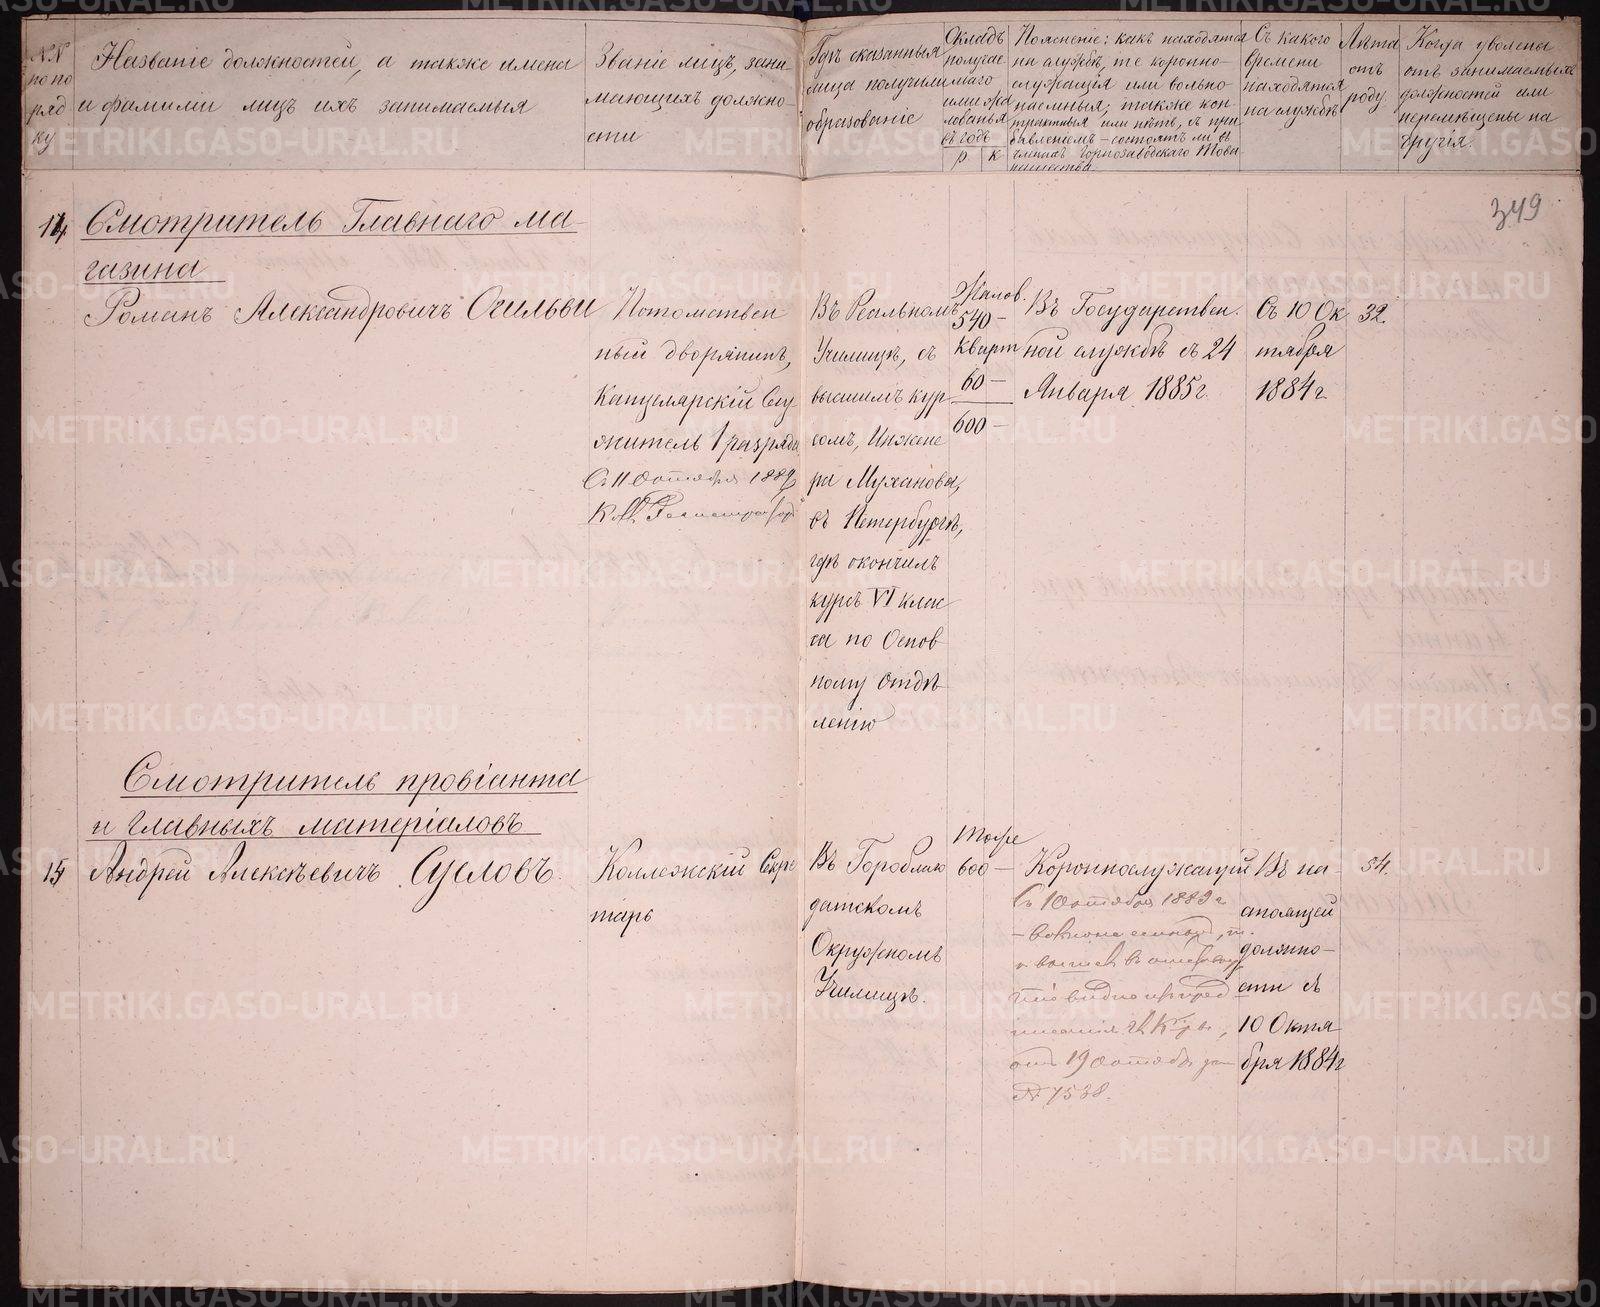 NN
по по
ряд
ку
Названіе должностей, а также имена
и фамиліи лицъ ихъ занимаемыя
Званіе лицъ, зани-
мающихъ должно-
сти
Гдѣ сказанныя
лица получили
образованіе
Окладъ
получае-
маго
ими жа
лованья
въ годъ
р к
Поясненіе: какъ находятся
на службѣ, те коронно-
служащія или вольно-
наемныя; также кон-
трактныя или нѣтъ, съ при-
бавленіемъ – состоятъ ли въ
членахъ Горнозаводскаго Това-
рищества.
Съ какого
времени
находятся
на службѣ
Лѣта
отъ
роду
Когда уволены
отъ занимаемыхъ
должностей или
перемѣщены на
другія.
349
14
Смотритель Главнаго ма-
газина
Романъ Александровичъ Огильви
Потомствен
ный дворянинъ,
Канцелярскій Слу
житель 1 разряда
Съ 11 Октября 1889
К. Регистраторъ
Въ Реальномъ
Училищѣ, съ
высшимъ кур
сомъ, Инжене
ра Муханова,
въ Петербургѣ,
гдѣ окончилъ
курсъ VI клас
са по Основ
ному Отдѣ
ленію
Жалов.
540 –
Кварт
60 –
600 –
Въ Государствен.
ной службѣ съ 24
Января 1885 г.
Съ 10 Ок
тября
1884 г
32.
Смотритель провіанта
и главныхъ матеріаловъ
15
Андрей Алексѣевичъ Сусловъ.
Коллежскій Секре
тарь
Въ Гороблаго
датскомъ
Окружномъ
Училищѣ.
тоже
600 –
Короннослужащій
Съ 10 октября 1889 г
видно изъ пред
писанія
отъ 19 Октября
№ 7538.
Въ на-
стоящей
должно-
сти съ
10 Октя
бря 1884 г
54.
METRIKI.GASO-URAL.RU